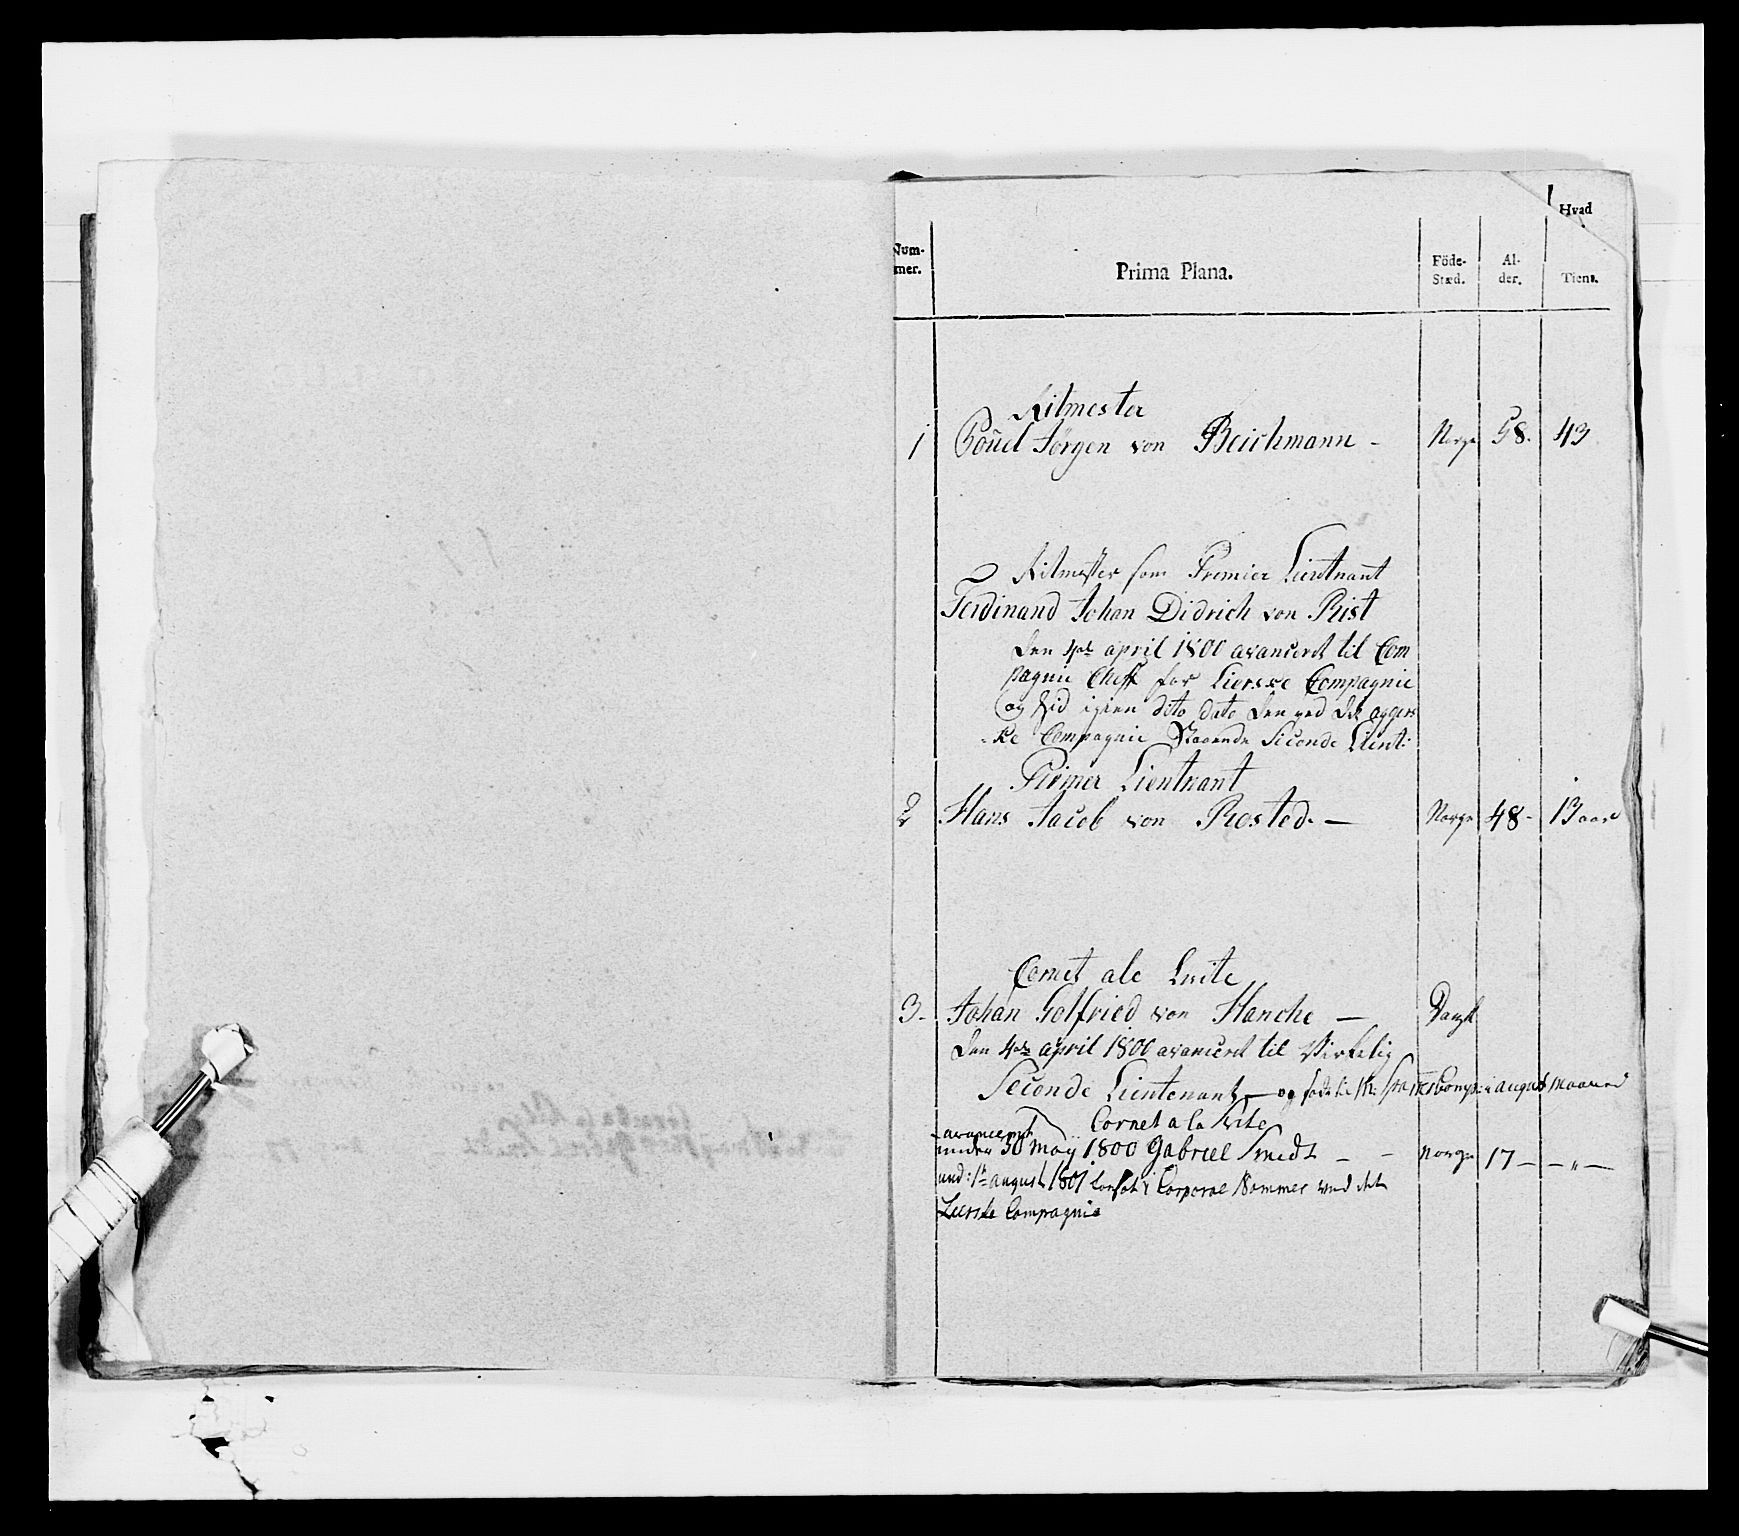 Hvad
Num-
mer.
Prima Plana.
Föde-
Stæd.
Al-
der.
Tient.
Ritmester
1 Pouel Jørgen von Beichmann - Norge 58. 43
Ritmester som Premier Lieutnant
Ferdinand Johan Didrich von Rist
den 4de april 1800 avanceret til Com
pagnie Cheff for Lierske Compagnie
og igien dito dato den ved det agers
ke Compagnie Staaende Seconde Lieut:
Primer Lieutnant
2 Hans Jacob von Rosted. — Norge 48- 13 aar
Cornet ale Suite
3- Johan Gotfried von Hanche — Dansk
den 4de april 1800 avanceret til Virkelig
Seconde Lieutenant — og august maaned
Cornet a la Svite
avanceret
under 30 may 1800 Gabriel Smedt - - Norge 17 — — " —
und: 1te august 1801 Corporal Nommer ved det
Lierske Compagnie